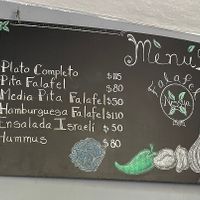 Menús
Plato Completo $115
Pita Falafel $80
Media Pita Falafel $50
Hamburguesa Falafel $110
Ensalada Israeli $50
Hummus $80
Falafel